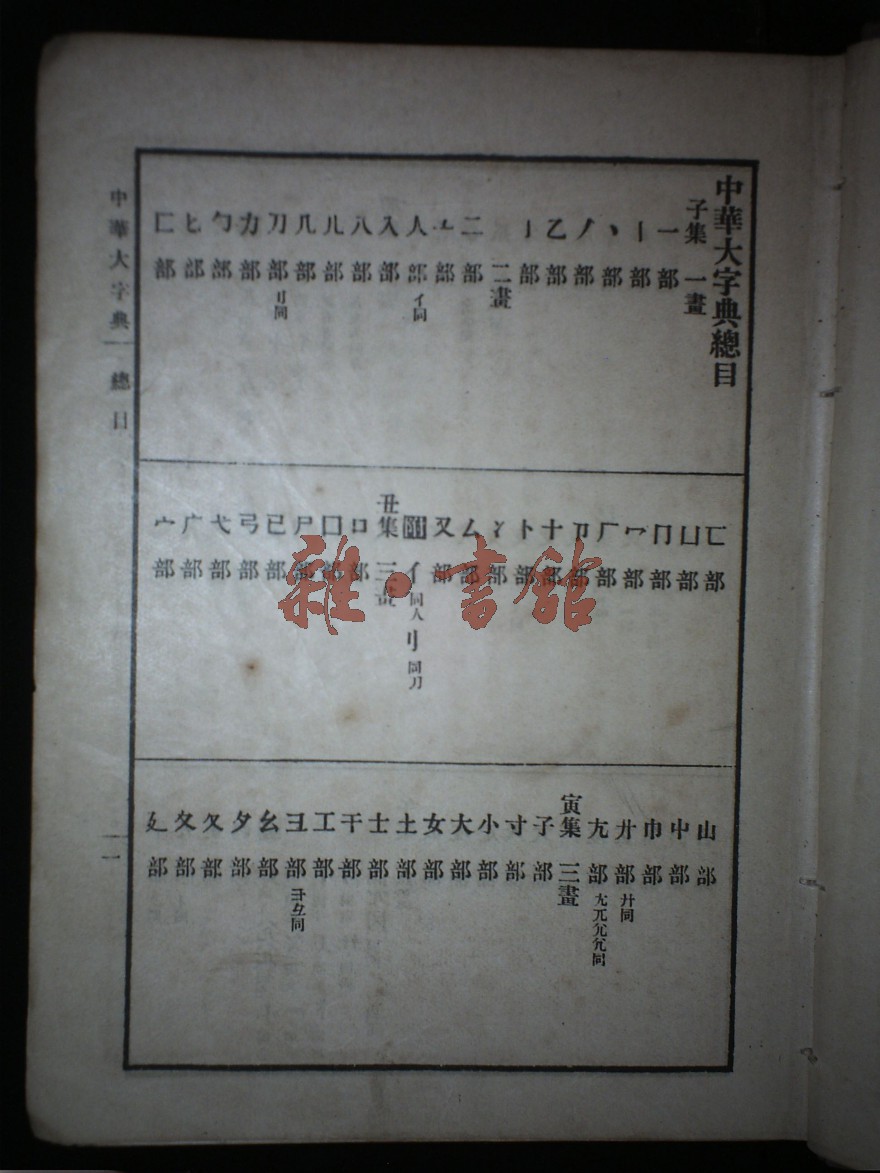 中華大字典總目
子集 一畫
一部
丨部
丶部
丿部
乙部
亅部
二畫
二部
亠部
人部 亻同
入部
八部
儿部
几部
刀部 刂同
力部
勹部
匕部
匚部
匸部
凵部
冂部
冖部
厂部
卩部
十部
卜部
冫部
厶部
又部
附 亻同人 刂同刀
丑集 三畫
口部
囗部
尸部
己部
弓部
弋部
广部
宀部
山部
屮部
巾部
廾部
尢部
寅集 三畫
子部
寸部
小部
大部
女部
土部
士部
干部
工部
彐部
幺部
夕部
夂部
夊部
廴部
中華大字典 總目
一
雜·書館